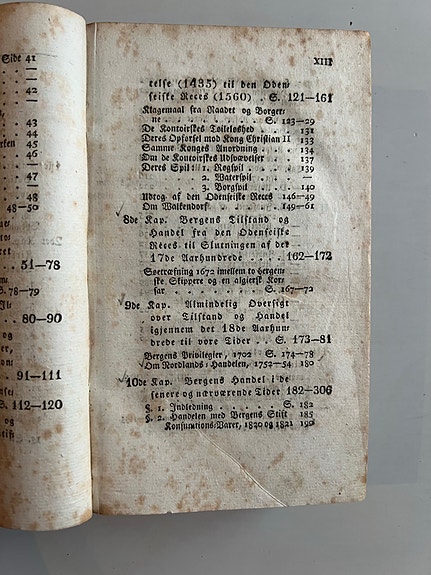 Side 41
43
44
45
46
47
48
48—50
51—78
S. 78—79
80—90
og
91—111
S. 112—120
og
XIII
telse (1435) til den Oden-
seiske Reces (1560) . S. 121—161
Klagemaal fra Raadet og Borger-
ne . . . . . . . S. 123—29
De Kontoirskes Tøileløshed . . . 131
Deres Opførsel mod Kong Christian II 133
Samme Konges Anordning . . . 134
Om de Kontoirskes Udsvævelser . . 137
Deres Spil: 1. Røgspil . . . . 139
2. Waterspil . . —
3. Borgspil . . 140
Udtog af den Odenseiske Reces 146—49
Om Walkendorf . . . . . 149—61
8de Kap. Bergens Tilstand og
Handel fra den Odenseiske
Reces til Slutningen af det
17de Aarhundrede . . . 162—172
Søetræfning 1672 imellem to bergen-
ske Skippere og en algiersk Kor-
sar . . . . . . S. 167—72
9de Kap. Almindelig Oversigt
over Tilstand og Handel
igjennem det 18de Aarhun-
drede til vore Tider . . S. 173—81
Bergens Privilegier, 1702 S. 174—78
Om Nordlands-Handelen, 1752—54 180
10de Kap. Bergens Handel i de
senere og nærværende Tider 182—306
§. 1. Indledning . . . . . S. 182
§. 2. Handelen med Bergens Stift 185
Konjunktions-Varer, 1820 og 1821 190